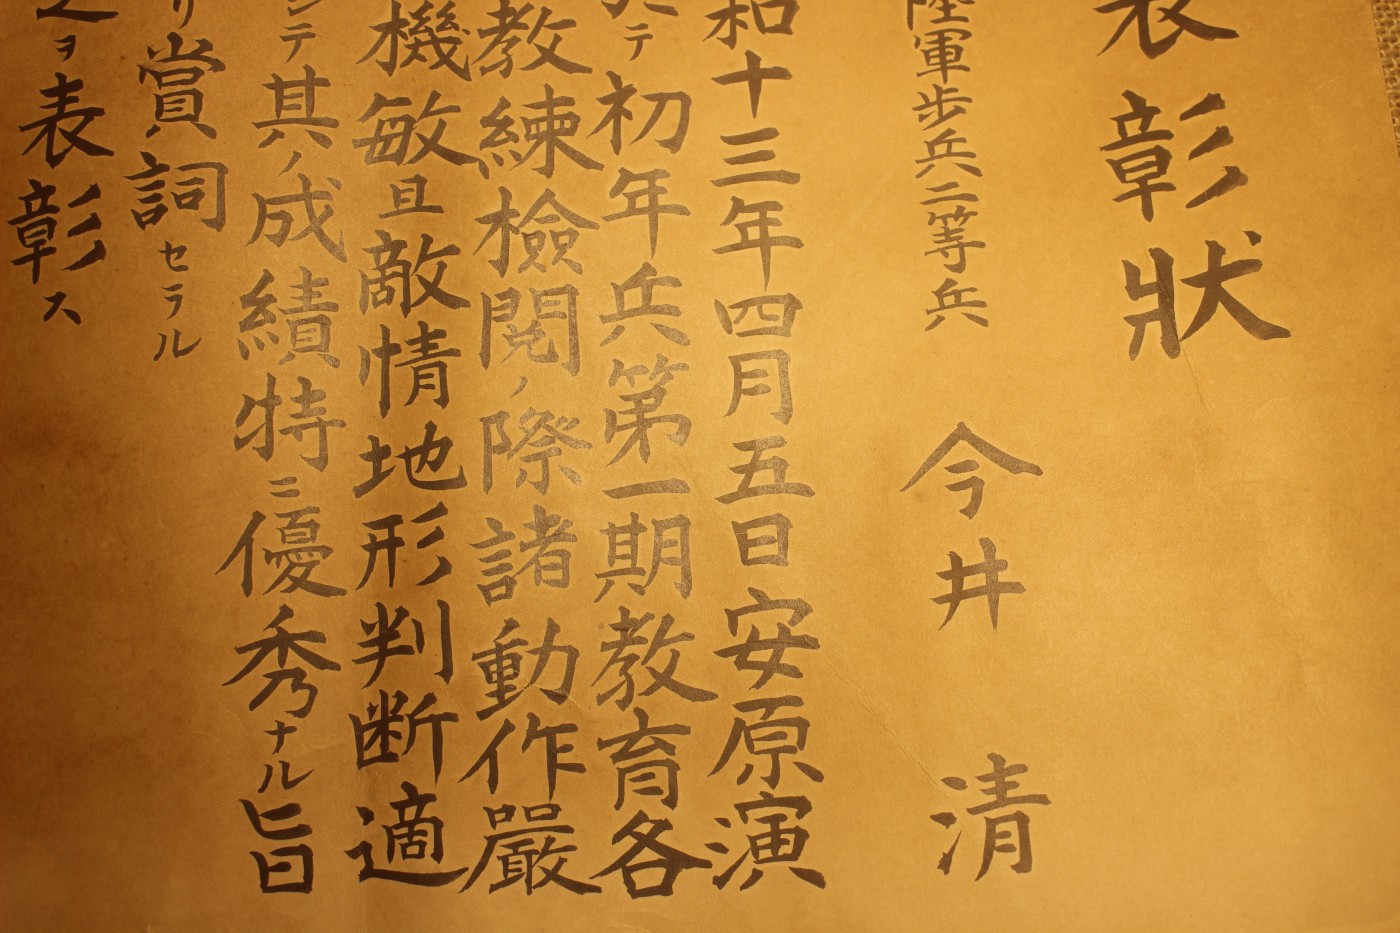 表彰狀
陸軍歩兵二等兵
今井　清
和十三年四月五日安原演
テ初年兵第一期教育各
教練檢閲ノ際諸動作嚴
機敏且敵情地形判断適
シテ其ノ成績特ニ優秀ナル旨
リ賞詞セラル
之ヲ表彰ス